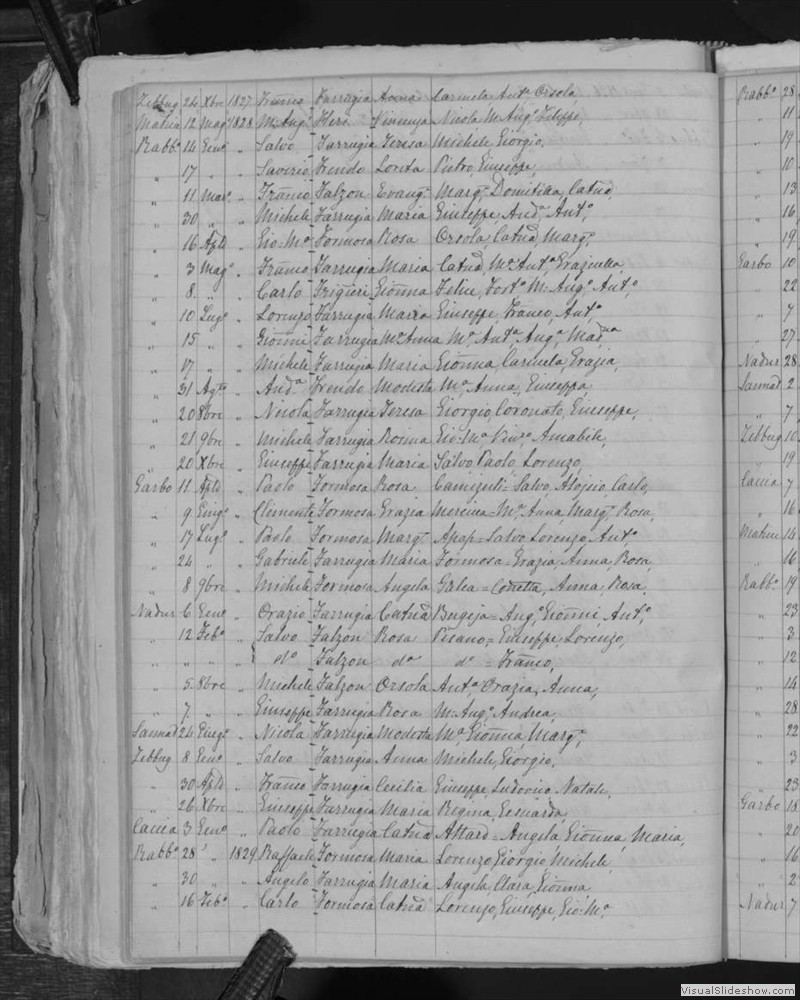 Zebbug 24 Xbre 1827 Franco Farrugia Anna Carmela Anta Orsola,
12 Mago 1828 M: Ango Vincenza Nicola M: Ango Filippo,
Rabbo 14 Geno " Salvo Farrugia Teresa Michele Giorgio,
" 17 " " Saverio Trendo Loreta Pietro Giuseppe,
" 11 Maro " Franco Falzon Evanga Marga Domitilla, Catna,
" 30 " " Michele Farrugia Maria Giuseppe, Anda Anto,
" 16 Aple " Gio: Ma Formosa Rosa Orsola, Catna, Marga,
" 3 Mago " Franco Farrugia Maria Catna, Ma Anta Graziella,
" 8 " " Carlo Frigieri Gionna Felice, M: Ango Anto,
" 10 Lugo " Lorenzo Farrugia Maria Giuseppe, Franco, Anto,
" 15 " " Gionni Farrugia Ma Anna Ma Anta, Anga, Mada
" 17 " " Michele Farrugia Maria Gionna, Carmela Grazia,
" 31 Agto " Anda Trendo Modesta Ma Anna, Giuseppa
" 20 8bre " Nicola Farrugia Teresa Giorgio, Coronato, Giuseppe,
" 21 9bre " Michele Farrugia Rosina Gio: Ma Amabile,
" 20 Xbre " Giuseppe Farrugia Maria Salvo Paolo Lorenzo,
Garbo 11 Aple " Paolo Formosa Rosa Salvo, Aloisio, Carlo,
" 9 Giugo " Clemente Formosa Grazia Mercieca = Ma Anna, Marga Rosa,
" 17 Lugo " Paolo Formosa Marga Apap = Salvo Lorenzo, Anto
" 24 " " Gabriele Farrugia Maria Formosa = Grazia, Anna, Rosa,
" 8 9bre " Michele Formosa Angela Galea = Conetta, Anna, Rosa,
Nadur 6 Geno " Orazio Farrugia Catna Bugeja = Ango, Gionni, Anto,
" 12 Febo " Salvo Falzon Rosa Pisano, = Giuseppe, Lorenzo,
" " " " do Falzon do do = Franco,
" 5 8bre " Michele Falzon Orsola Anta Orazia, Anna,
" 7 " " Giuseppe Farrugia Rosa M: Ango Andrea,
Sannat 24 Giugo " Nicola Farrugia Modesta Ma Gionna, Marga,
Zebbug 8 Geno " Salvo Farrugia Anna Michele, Giorgio,
" 30 Aple " Franco Farrugia Cecilia Giuseppe, Ludovico Natale,
" 26 Xbre " Giuseppe Farrugia Maria Regina
Caccia 3 Geno " Paolo Farrugia Catna Attard = Angela, Gionna, Maria,
Rabbo 28 " 1829 Raffaele Formosa Maria Lorenzo, Giorgio, Michele,
" 30 " " Angelo Farrugia Maria Angela Clara, Gionna
" 16 Febo " Carlo Formosa Catna Lorenzo, Giuseppe, Gio: Ma
Rabbo 28
" 11
" 19
" 10
" 13
" 16
" 19
Garbo 10
" 22
" 7
" 27
Nadur 28
Sannat 2
" 7
Zebbug 10
" 19
Caccia 7
" 16
14
" 16
Rabbo 19
" 23
" 3
" 12
" 14
" 28
" 22
" 3
" 23
Garbo 18
" 20
" 16
" 2
Nadur 7
VisualSlideshow.com